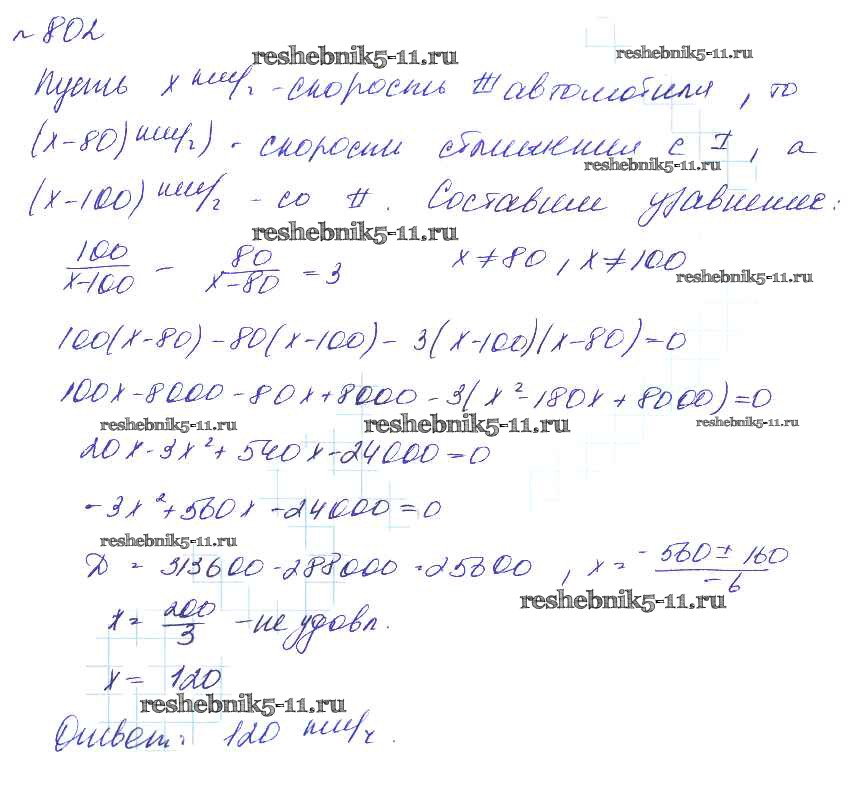 № 802
reshebnik5-11.ru reshebnik5-11.ru
Пусть x км/ч - скорость III автомобиля, то
(x-80) км/ч) - скорости сближения с I, а
reshebnik5-11.ru
(x-100) км/ч - со II. Составим уравнение:
reshebnik5-11.ru
100/(x-100) - 80/(x-80) = 3 x≠80, x≠100
reshebnik5-11.ru
100(x-80)-80(x-100)-3(x-100)(x-80)=0
100x-8000-80x+8000-3(x²-180x+8000)=0
reshebnik5-11.ru reshebnik5-11.ru reshebnik5-11.ru
20x-3x²+540x-24000=0
-3x²+560x-24000=0
reshebnik5-11.ru
D = 313600-288000=25600, x = (-560±160)/(-6)
reshebnik5-11.ru
x = 200/3 - не удовл.
x = 120
reshebnik5-11.ru
Ответ: 120 км/ч.